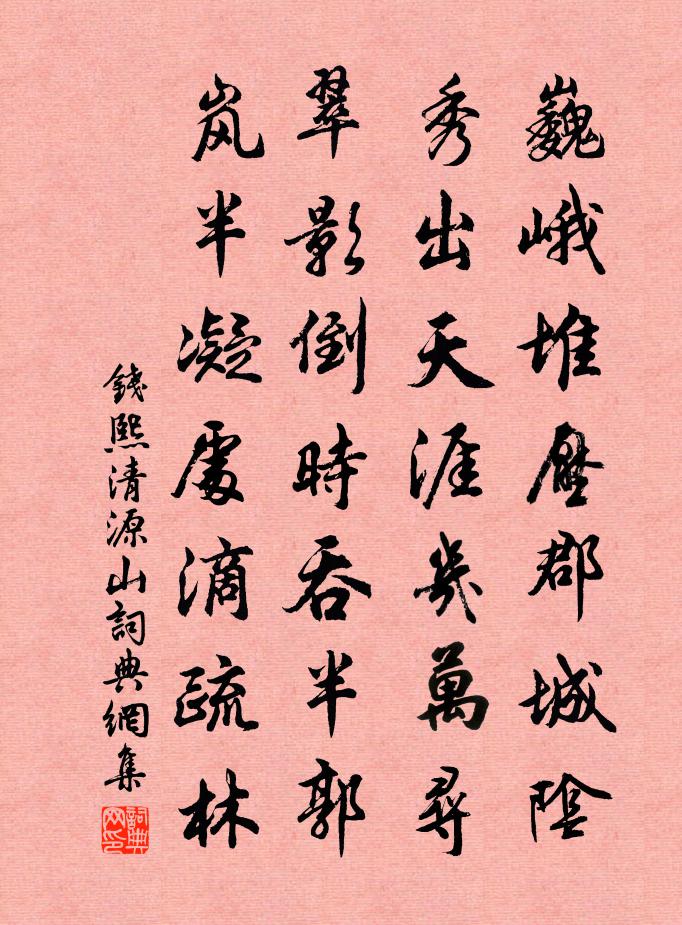 巍峨堆壓郡城陰
秀出天涯幾萬尋
翠影倒時吞半郭
嵐半凝處滴疏林
錢熙清源山詞典網集
詞典网印